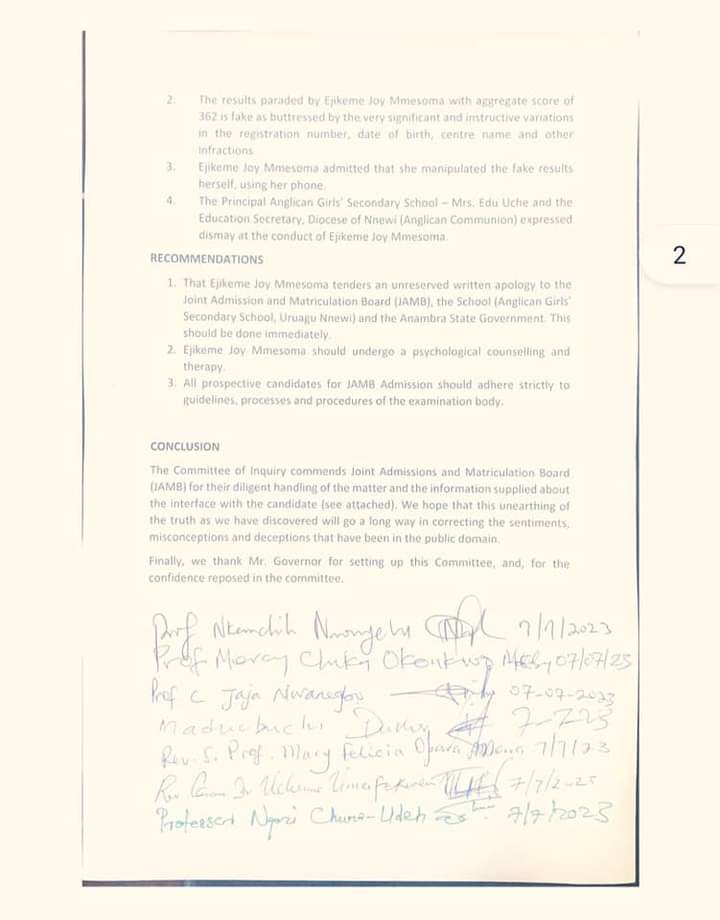 2. The results paraded by Ejikeme Joy Mmesoma with aggregate score of
362 is fake as buttressed by the very significant and instructive variations
in the registration number, date of birth, centre name and other
infractions.
3. Ejikeme Joy Mmesoma admitted that she manipulated the fake results
herself, using her phone.
4. The Principal Anglican Girls' Secondary School – Mrs. Edu Uche and the
Education Secretary, Diocese of Nnewi (Anglican Communion) expressed
dismay at the conduct of Ejikeme Joy Mmesoma.
RECOMMENDATIONS
1. That Ejikeme Joy Mmesoma tenders an unreserved written apology to the
Joint Admission and Matriculation Board (JAMB), the School (Anglican Girls'
Secondary School, Uruagu Nnewi) and the Anambra State Government. This
should be done immediately.
2. Ejikeme Joy Mmesoma should undergo a psychological counselling and
therapy.
3. All prospective candidates for JAMB Admission should adhere strictly to
guidelines, processes and procedures of the examination body.
2
CONCLUSION
The Committee of Inquiry commends Joint Admissions and Matriculation Board
(JAMB) for their diligent handling of the matter and the information supplied about
the interface with the candidate (see attached). We hope that this unearthing of
the truth as we have discovered will go a long way in correcting the sentiments,
misconceptions and deceptions that have been in the public domain.
Finally, we thank Mr. Governor for setting up this Committee, and, for the
confidence reposed in the committee.
Prof 7/7/2023
Prof Mercy Chuka Okonkwo 07/07/23
Prof C Jaja 07-07-2023
7-723
Rev. Sr. Prof. Mary Felicia Opara 7/7/23
Rev Canon Dr
Professor Ngozi Chuma-Udeh 7/7/2023